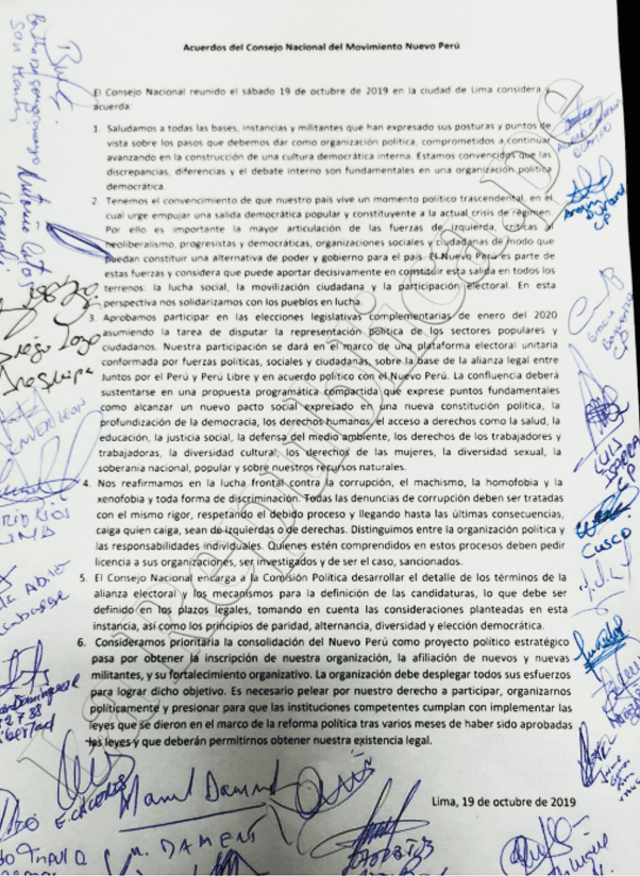 Acuerdos del Consejo Nacional del Movimiento Nuevo Perú
El Consejo Nacional reunido el sábado 19 de octubre de 2019 en la ciudad de Lima considera y
acuerda:
1. Saludamos a todas las bases, instancias y militantes que han expresado sus posturas y puntos de
vista sobre los pasos que debemos dar como organización política, comprometidos a continuar
avanzando en la construcción de una cultura democrática interna. Estamos convencidos que las
discrepancias, diferencias y el debate interno son fundamentales en una organización política
democrática.
2. Tenemos el convencimiento de que nuestro país vive un momento político trascendental, en el
cual urge empujar una salida democrática popular y constituyente a la actual crisis de régimen.
Por ello es importante la mayor articulación de las fuerzas de izquierda, críticas al
neoliberalismo, progresistas y democráticas, organizaciones sociales y ciudadanas de modo que
puedan constituir una alternativa de poder y gobierno para el país. El Nuevo Perú es parte de
estas fuerzas y considera que puede aportar decisivamente en constituir esta salida en todos los
terrenos: la lucha social, la movilización ciudadana y la participación electoral. En esta
perspectiva nos solidarizamos con los pueblos en lucha.
3. Aprobamos participar en las elecciones legislativas complementarias de enero del 2020
asumiendo la tarea de disputar la representación política de los sectores populares y
ciudadanos. Nuestra participación se dará en el marco de una plataforma electoral unitaria
conformada por fuerzas políticas, sociales y ciudadanas, sobre la base de la alianza legal entre
Juntos por el Perú y Perú Libre y en acuerdo político con el Nuevo Perú. La confluencia deberá
sustentarse en una propuesta programática compartida que exprese puntos fundamentales
como alcanzar un nuevo pacto social expresado en una nueva constitución política, la
profundización de la democracia, los derechos humanos, el acceso a derechos como la salud, la
educación, la justicia social, la defensa del medio ambiente, los derechos de los trabajadores y
trabajadoras, la diversidad cultural, los derechos de las mujeres, la diversidad sexual, la
soberanía nacional, popular y sobre nuestros recursos naturales.
4. Nos reafirmamos en la lucha frontal contra la corrupción, el machismo, la homofobia y la
xenofobia y toda forma de discriminación. Todas las denuncias de corrupción deben ser tratadas
con el mismo rigor, respetando el debido proceso y llegando hasta las últimas consecuencias,
caiga quien caiga, sean de izquierdas o de derechas. Distinguimos entre la organización política y
las responsabilidades individuales. Quienes estén comprendidos en estos procesos deben pedir
licencia a sus organizaciones, ser investigados y de ser el caso, sancionados.
5. El Consejo Nacional encarga a la Comisión Política desarrollar el detalle de los términos de la
alianza electoral y los mecanismos para la definición de las candidaturas, lo que debe ser
definido en los plazos legales, tomando en cuenta las consideraciones planteadas en esta
instancia, así como los principios de paridad, alternancia, diversidad y elección democrática.
6. Consideramos prioritaria la consolidación del Nuevo Perú como proyecto político estratégico
pasa por obtener la inscripción de nuestra organización, la afiliación de nuevos y nuevas
militantes, y su fortalecimiento organizativo. La organización debe desplegar todos sus esfuerzos
para lograr dicho objetivo. Es necesario pelear por nuestro derecho a participar, organizarnos
políticamente y presionar para que las instituciones competentes cumplan con implementar las
leyes que se dieron en el marco de la reforma política tras varios meses de haber sido aprobadas
las leyes y que deberán permitirnos obtener nuestra existencia legal.
Lima, 19 de octubre de 2019
Arequipa
CP
CP
LUIS
CUSCO
E. CACERES
Manuel Dammert
M. DAMMERT